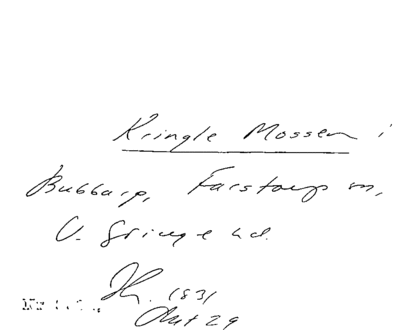 Kringle Mossen i
Bubbarp, Farstorp sn,
V. Göinge hd.
Th. 1831
Akt 29